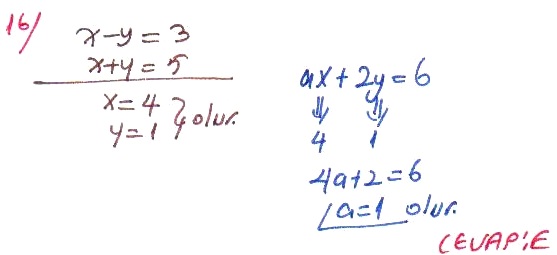 16/
x-y=3
x+y=5
x=4
y=1 } olur.
ax+2y=6
⇓ ⇓
4 1
4a+2=6
a=1 olur.
CEVAP:E